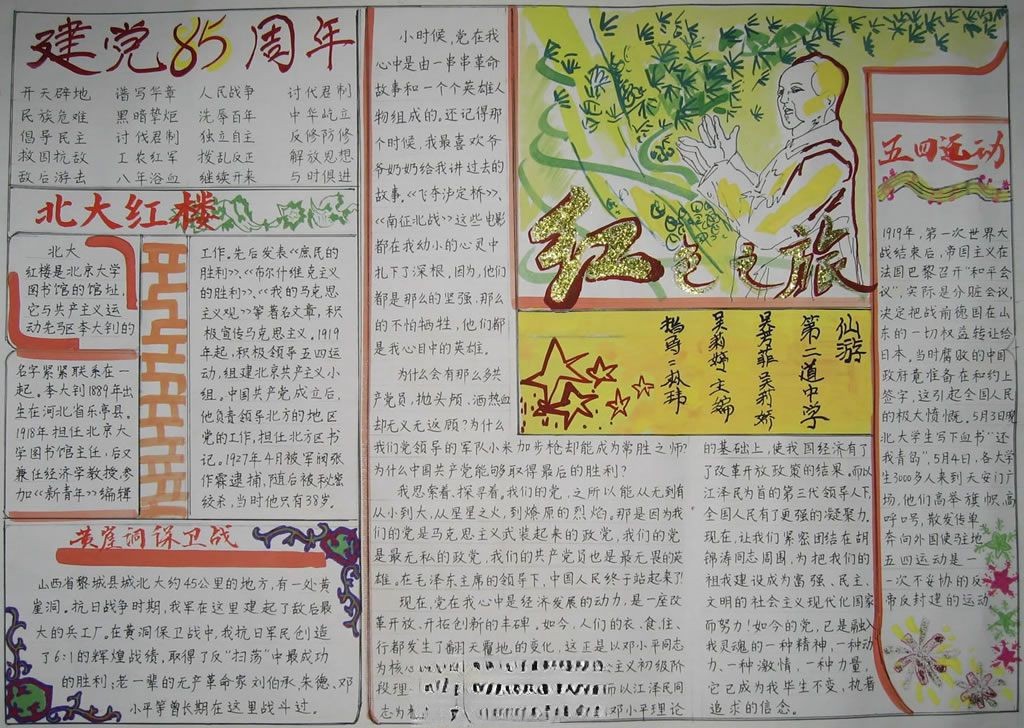 建党85周年
开天辟地 谱写华章 人民战争 讨伐君制
民族危难 黑暗擎炬 洗辱百年 中华屹立
倡导民主 讨伐君制 独立自主 反修防修
救国抗敌 工农红军 拨乱反正 解放思想
敌后游击 八年浴血 继续开来 与时俱进
北大红楼
北大
红楼是北京大学
图书馆的馆址,
它与共产主义运
动先驱李大钊的
名字紧紧联系在一
起。李大钊1889年出
生在河北省乐亭县。
1918年担任北京大
学图书馆主任,后又
兼任经济学教授,参
加《新青年》编辑
工作。先后发表《庶民的
胜利》、《布尔什维克主义
的胜利》、《我的马克思
主义观》等著名文章,积
极宣传马克思主义。1919
年起,积极领导五四运
动,组建北京共产主义小
组。中国共产党成立后,
他负责领导北方的地区
党的工作,担任北方区书
记。1927年4月被军阀张
作霖逮捕,随后被秘密
绞杀,当时他只有38岁。
黄崖洞保卫战
山西省黎城县城北大约45公里的地方,有一处黄
崖洞。抗日战争时期,我军在这里建起了敌后最
大的兵工厂。在黄洞保卫战中,我抗日军民创造
了6:1的辉煌战绩,取得了反“扫荡”中最成功
的胜利;老一辈的无产革命家刘伯承、朱德、邓
小平等曾长期在这里战斗过。
小时候,党在我
心中是由一串串革命
故事和一个个英雄人
物组成的。还记得那
个时候,我最喜欢爷
爷奶奶给我讲过去的
故事,《飞夺泸定桥》、
《南征北战》这些电影
都在我幼小的心灵中
扎下了深根,因为,他们
都是那么的坚强,那么
的不怕牺牲,他们都
是我心目中的英雄。
为什么会有那么多共
产党员,抛头颅、洒热血
却无义无返顾?为什么
我们党领导的军队小米加步枪却能成为常胜之师?
为什么中国共产党能够取得最后的胜利?
我思索着、探寻着,我们的党,之所以能从无到有
从小到大,从星星之火,到燎原的烈焰。那是因为我
们的党是马克思主义武装起来的政党,我们的党
是最无私的政党,我们的共产党员也是最无畏的英
雄。在毛泽东主席的领导下,中国人民终于站起来了!
现在,党在我心中是经济发展的动力,是一座改
革开放、开拓创新的丰碑。如今,人们的衣、食、住、
行都发生了翻天覆地的变化,这正是以邓小平同志
为核心
主义初级阶
段理
而以江泽民同
志为
邓小平理论
红色之旅
仙游
第二道中学
吴芳菲 吴莉娇
吴莉婷 主编
的基础上,使我国经济有了
了改革开放政策的结果。而以
江泽民为首的第三代领导人下,
全国人民有了更强的凝聚力。
现在,让我们紧密团结在胡
锦涛同志周围,为把我们的
祖我建设成为富强、民主、
文明的社会主义现代化国家
而努力!如今的党,已是融入
我灵魂的一种精神,一种动
力、一种激情、一种力量,
它已成为我毕生不变、执着
追求的信念。
五四运动
1919年,第一次世界大
战结束后,帝国主义在
法国巴黎召开“和平会
议”,实际是分赃会议,
决定把战前德国在山
东的一切权益转让给
日本。当时腐败的中国
政府竟准备在和约上
签字,这引起全国人民
的极大愤慨。5月3日晚
北大学生写下血书“还
我青岛”,5月4日,各大学
生3000多人来到天安门广
场,他们高举旗帜,高
呼口号,散发传单
奔向外国使驻地
五四运动是一
一次不妥协的反
帝反封建的运动